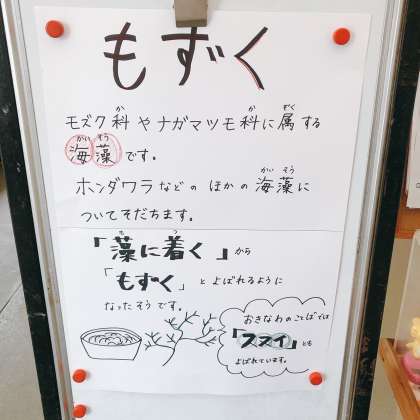 もずく
モズク科やナガマツモ科に属する
海藻です。
ホンダワラなどのほかの海藻に
ついてそだちます。
「藻に着く」から
「もずく」とよばれるように
なったそうです。
おきなわのことばでは
「スヌイ」とも
よばれています。